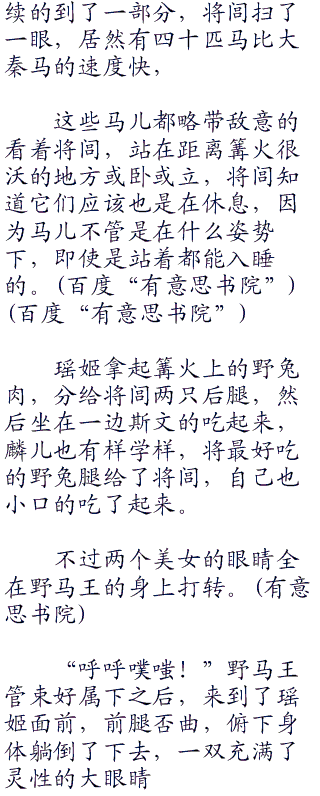 续的到了一部分，将闾扫了
一眼，居然有四十匹马比大
秦马的速度快，
这些马儿都略带敌意的
看着将闾，站在距离篝火很
沃的地方或卧或立，将闾知
道它们应该也是在休息，因
为马儿不管是在什么姿势
下，即使是站着都能入睡
的。(百度“有意思书院”)
(百度“有意思书院”)
瑶姬拿起篝火上的野兔
肉，分给将闾两只后腿，然
后坐在一边斯文的吃起来，
麟儿也有样学样，将最好吃
的野兔腿给了将闾，自己也
小口的吃了起来。
不过两个美女的眼睛全
在野马王的身上打转。(有意
思书院)
“呼呼噗嗤！”野马王
管束好属下之后，来到了瑶
姬面前，前腿否曲，俯下身
体躺倒了下去，一双充满了
灵性的大眼睛